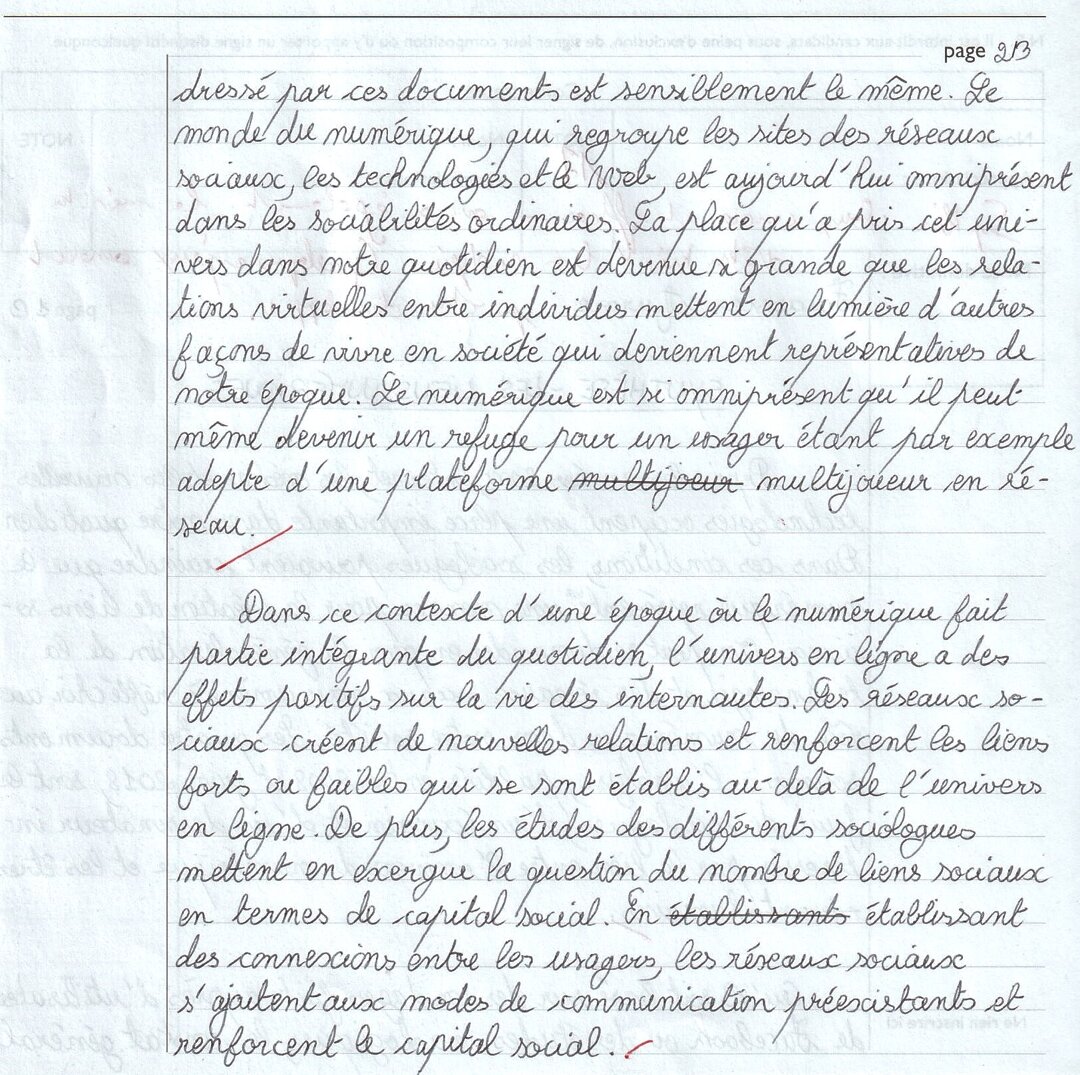 page 2/3
dressé par ces documents est sensiblement le même. Le
monde du numérique, qui regroupe les sites des réseaux
sociaux, les technologies et le Web, est aujourd'hui omniprésent
dans les sociabilités ordinaires. La place qu'a pris cet uni-
vers dans notre quotidien est devenue si grande que les rela-
tions virtuelles entre individus mettent en lumière d'autres
façons de vivre en société qui deviennent représentatives de
notre époque. Le numérique est si omniprésent qu'il peut
même devenir un refuge pour un usager étant par exemple
adepte d'une plateforme multijoeur multijoueur en ré-
seau.
Dans ce contexte d'une époque où le numérique fait
partie intégrante du quotidien, l'univers en ligne a des
effets positifs sur la vie des internautes. Les réseaux so-
ciaux créent de nouvelles relations et renforcent les liens
forts ou faibles qui se sont établis au-delà de l'univers
en ligne. De plus, les études des différents sociologues
mettent en exergue la question du nombre de liens sociaux
en termes de capital social. En établissants établissant
des connexions entre les usagers, les réseaux sociaux
s'ajoutent aux modes de communication préexistants et
renforcent le capital social.